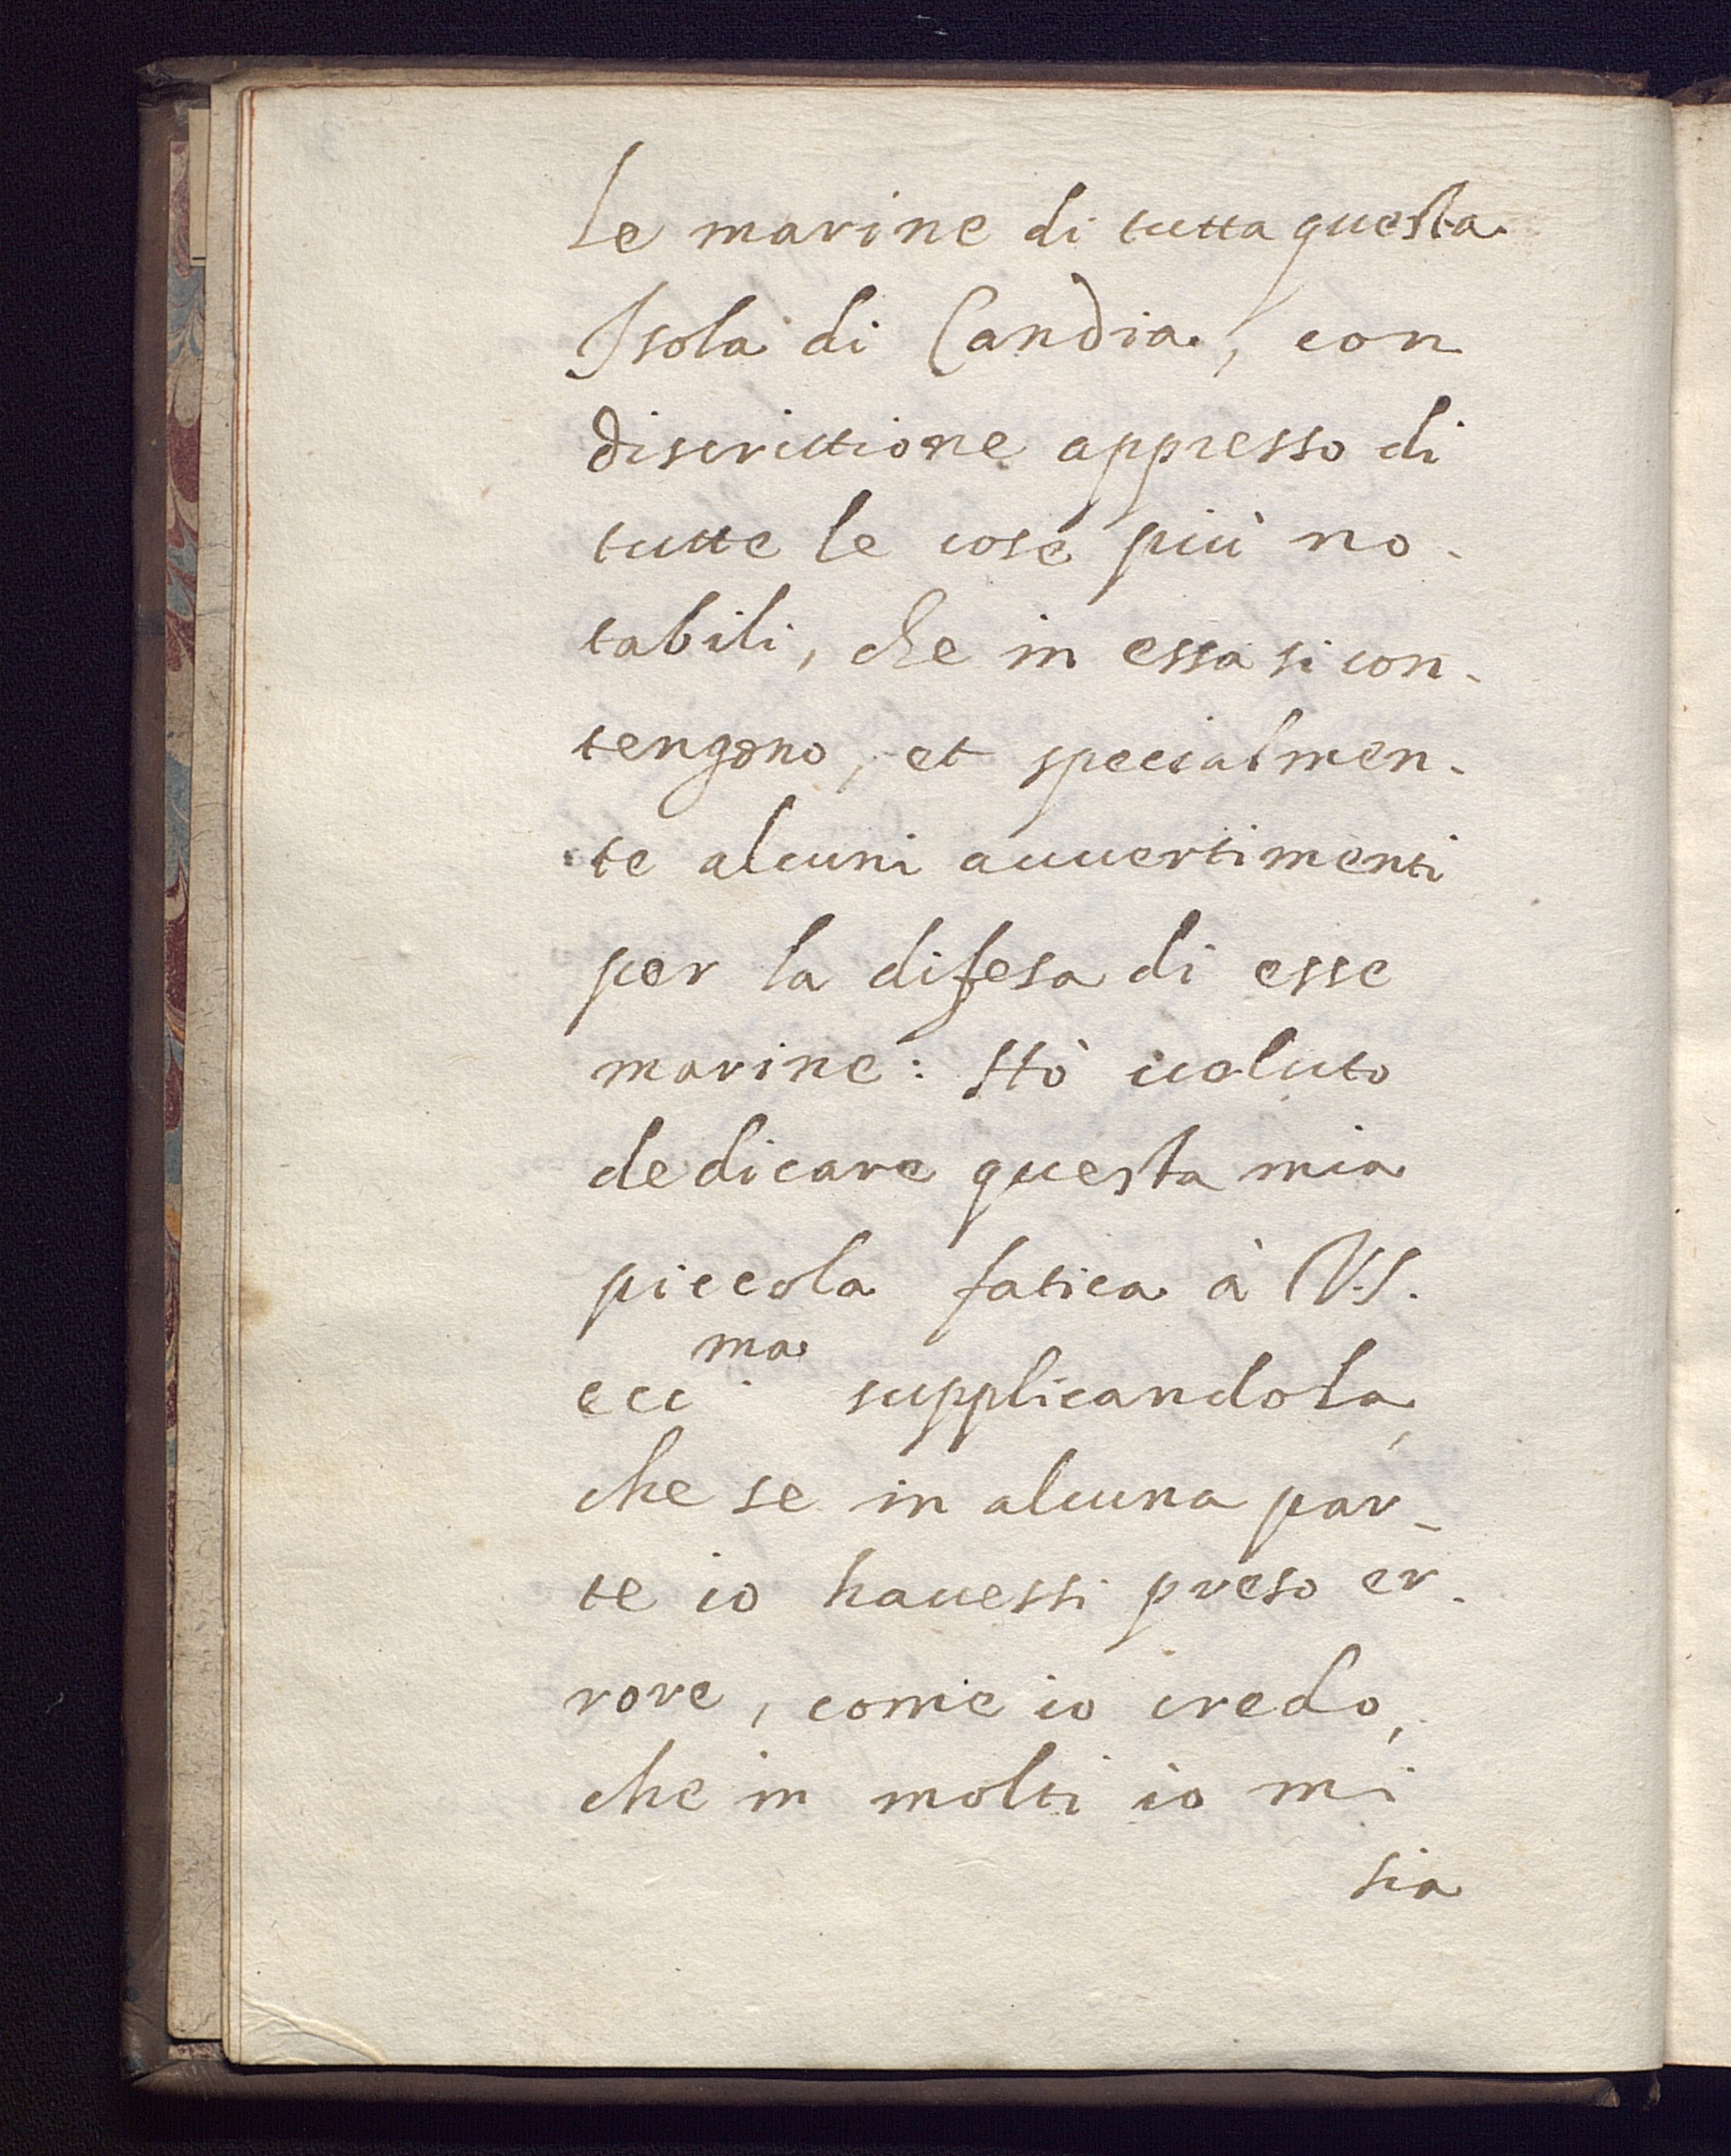 le marine di tutta questa
Isola di Candia, con
discrittione appresso di
tutte le cose più no-
tabili, che in essa si con-
tengono, et specialmen-
te alcuni auuertimenti
per la difesa di esse
marine: Hò uoluto
dedicare questa mia
piccola fatica à V.S.
ecc.ma supplicandola,
che se in alcuna par-
te io hauessi preso er-
rore, come io credo,
che in molti io mi
sia